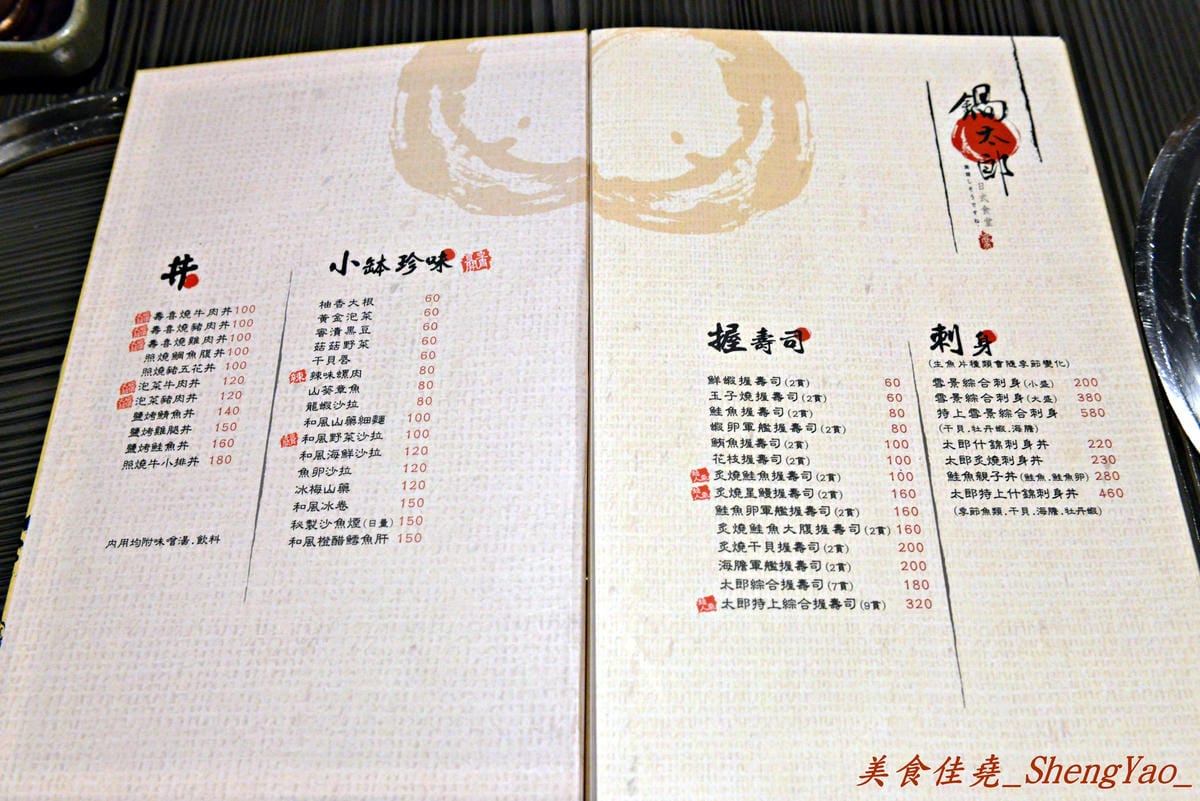 丼
壽喜燒牛肉丼100
壽喜燒豬肉丼100
壽喜燒雞肉丼100
照燒鯛魚腹丼100
照燒豬五花丼 100
泡菜牛肉丼 120
泡菜豬肉丼 120
鹽烤鯖魚丼 140
鹽烤雞腿丼 150
鹽烤鮭魚丼 160
照燒牛小排丼 180
內用均附味噌湯.飲料
小缽珍味
柚香大根 60
黃金泡菜 60
蜜漬黑豆 60
菇菇野菜 60
干貝唇 60
辣 辣味螺肉 80
山葵章魚 80
龍蝦沙拉 80
和風山藥細麵 100
和風野菜沙拉 100
和風海鮮沙拉 120
魚卵沙拉 120
冰梅山藥 120
和風冰卷 150
秘製沙魚煙(日量) 150
和風橙醋鱈魚肝 150
鍋太郎
日式食堂
握壽司
鮮蝦握壽司(2貫) 60
玉子燒握壽司(2貫) 60
鮭魚握壽司(2貫) 80
蝦卵軍艦握壽司(2貫) 80
鮪魚握壽司(2貫) 100
花枝握壽司(2貫) 100
炙燒鮭魚握壽司(2貫) 100
炙燒星鰻握壽司(2貫) 160
鮭魚卵軍艦握壽司(2貫) 160
炙燒鮭魚大腹握壽司(2貫) 160
炙燒干貝握壽司(2貫) 200
海膽軍艦握壽司(2貫) 200
太郎綜合握壽司(7貫) 180
太郎特上綜合握壽司(9貫) 320
刺身
(生魚片種類會隨季節變化)
雪景綜合刺身(小盛) 200
雪景綜合刺身(大盛) 380
特上雪景綜合刺身 580
(干貝.牡丹蝦.海膽)
太郎什錦刺身丼 220
太郎炙燒刺身丼 230
鮭魚親子丼(鮭魚.鮭魚卵) 280
太郎特上什錦刺身丼 460
(季節魚類.干貝.海膽.牡丹蝦)
美食佳堯_ShengYao_